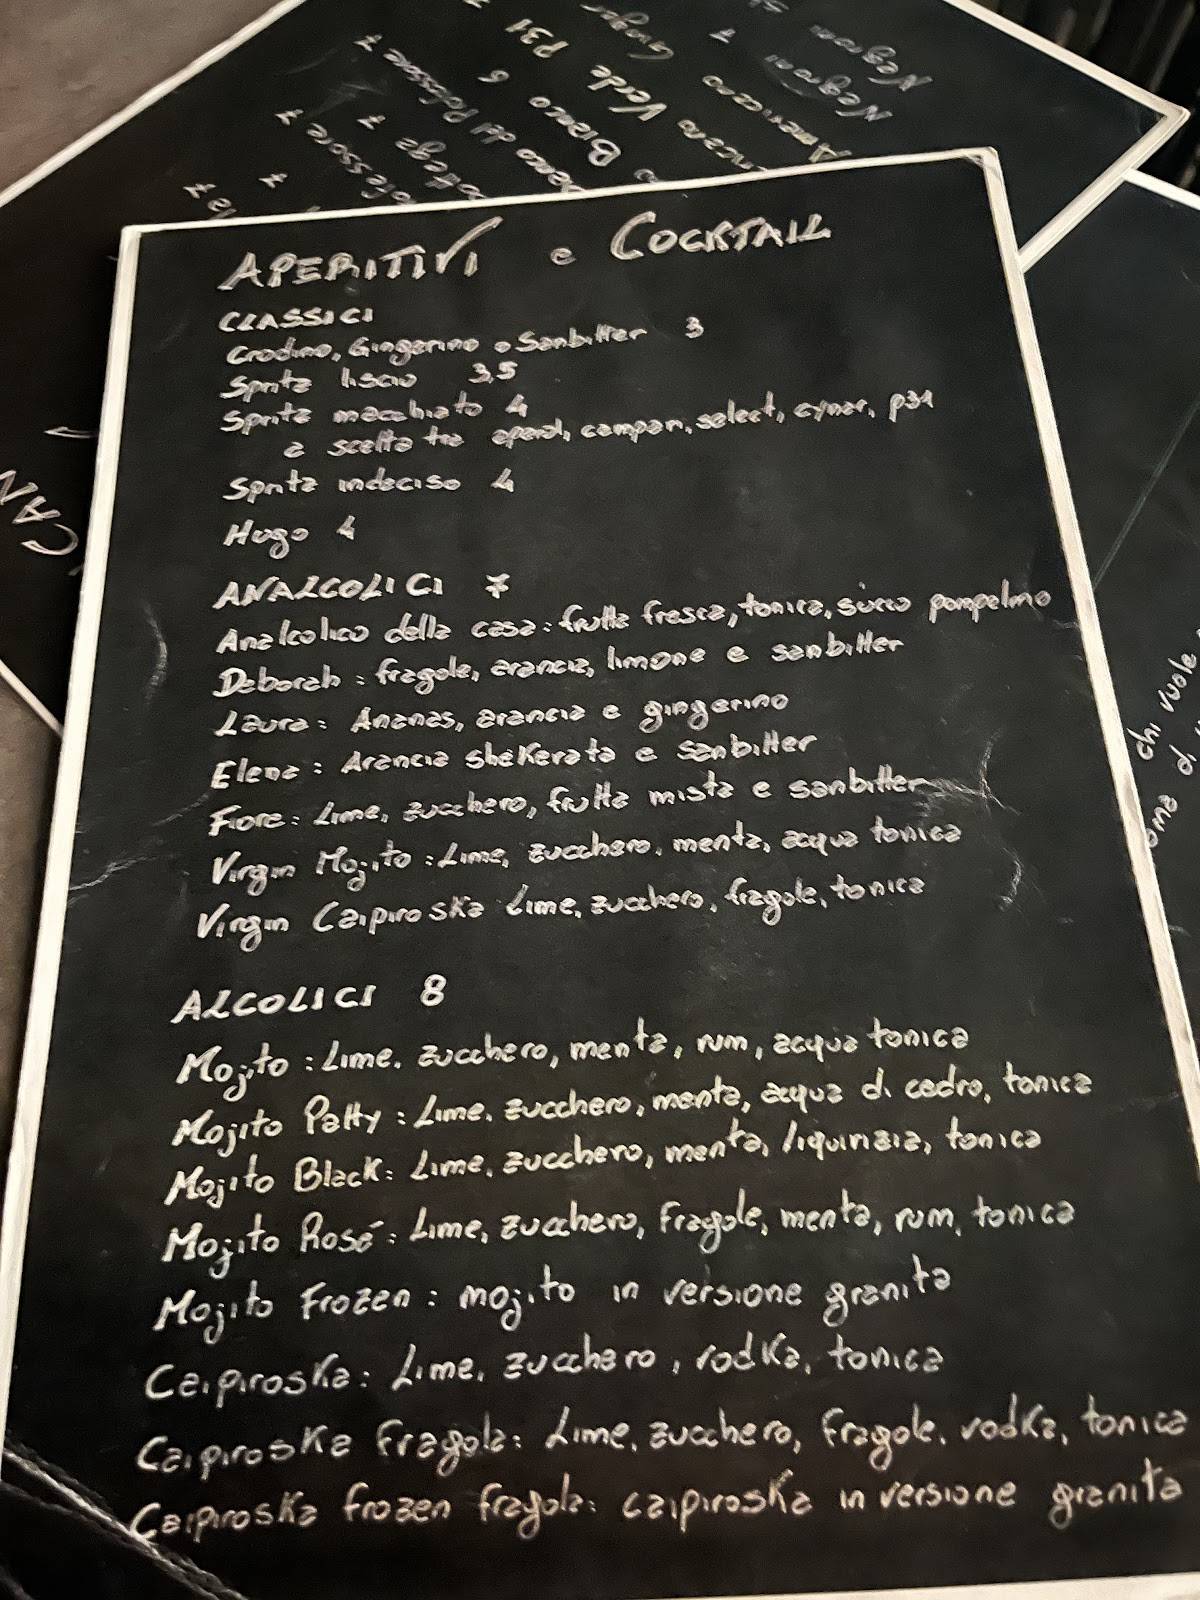 APERITIVI e COCKTAIL
CLASSICI
Crodino, Gingerino o Sanbitter 3
Spritz liscio 3,5
Spritz macchiato 4
a scelta tra aperol, campari, select, cynar, p31
Spritz indeciso 4
Hugo 4
ANALCOLICI 7
Analcolico della casa: frutta fresca, tonica, succo pompelmo
Deborah: fragole, arancia, limone e sanbitter
Laura: Ananas, arancia e gingerino
Elena: Arancia shekerata e sanbitter
Fiore: Lime, zucchero, frutta mista e sanbitter
Virgin Mojito: Lime, zucchero, menta, acqua tonica
Virgin Caipiroska Lime, zucchero, fragole, tonica
ALCOLICI 8
Mojito: Lime, zucchero, menta, rum, acqua tonica
Mojito Patty: Lime, zucchero, menta, acqua di cedro, tonica
Mojito Black: Lime, zucchero, menta, liquirizia, tonica
Mojito Rosé: Lime, zucchero, Fragole, menta, rum, tonica
Mojito Frozen: mojito in versione granita
Caipiroska: Lime, zucchero, vodka, tonica
Caipiroska Fragola: Lime, zucchero, Fragole, vodka, tonica
Caipiroska frozen fragola: caipiroska in versione granita
Negroni
Negroni 7
Americano
Ginger
Verde P31
Bianco 6
del Professore 7
7
7
7
CAN
chi vuole
di